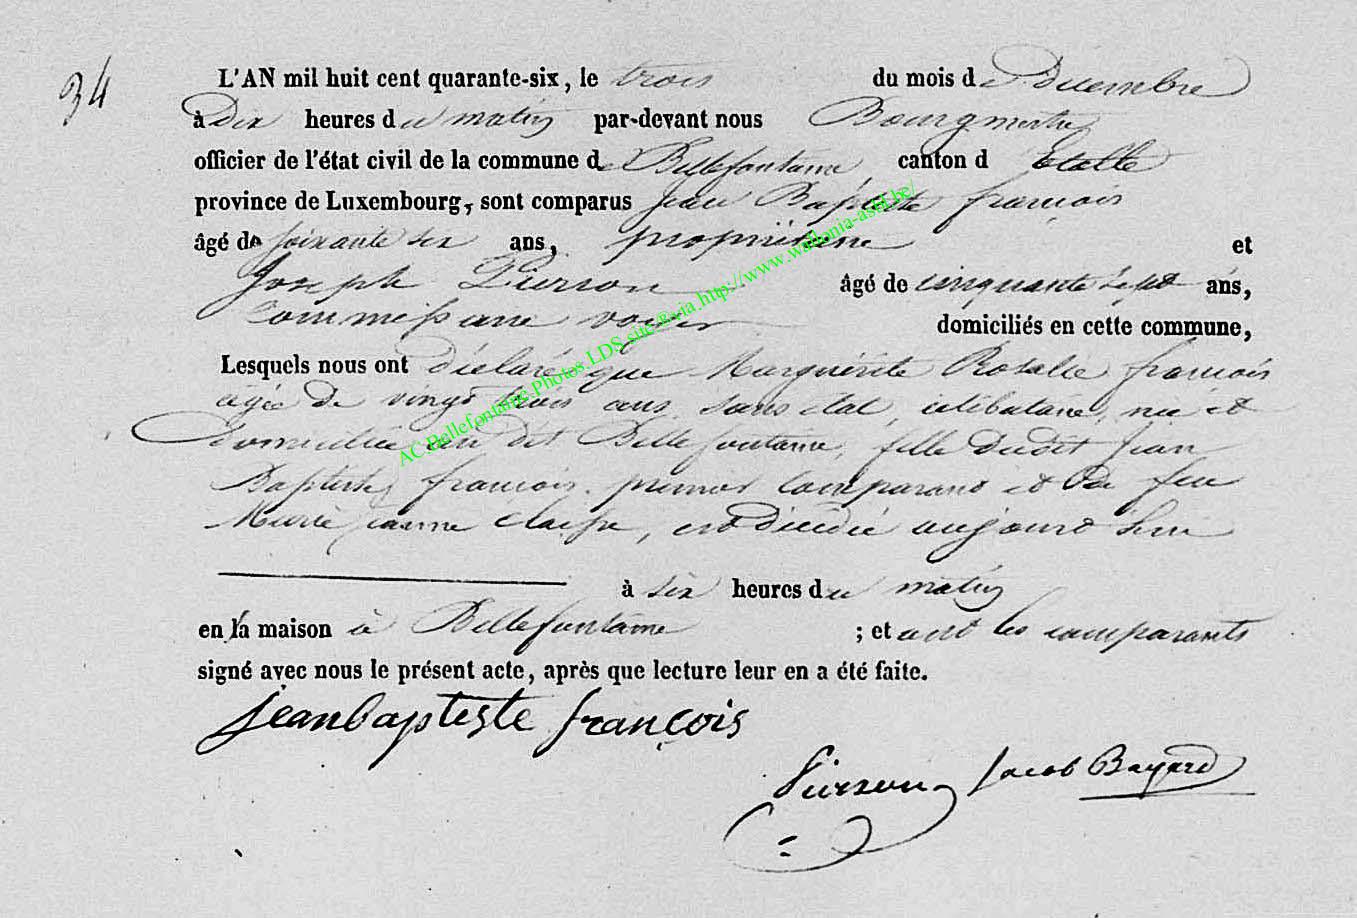 34
L'AN mil huit cent quarante-six, le trois du mois de Decembre
à Dix heures du matin par-devant nous Bourgmestre
officier de l'état civil de la commune de Bellefontaine, canton d Etalle
province de Luxembourg, sont comparus Jean Baptiste françois
âgé de soixante six ans, propriétaire et
Joseph Pierson âgé de cinquante sept ans,
Commissaire voyer domiciliés en cette commune,
Lesquels nous ont déclaré que Marguerite Rosalie françois
agée de vingt trois ans, sans état, célibataire, née et
domiciliée au dit Bellefontaine, fille dudit Jean
Baptiste françois premier comparant et de feu
Marie Jeanne, est décédée aujourd'hui
à six heures du matin
en la maison à Bellefontaine ; et ont les comparants
signé avec nous le présent acte, après que lecture leur en a été faite.
jeanbaptiste françois
Pierson Jacob Bayard
AC Bellefontaine Photos LDS site &via http://www.wallonia-asbl.be/